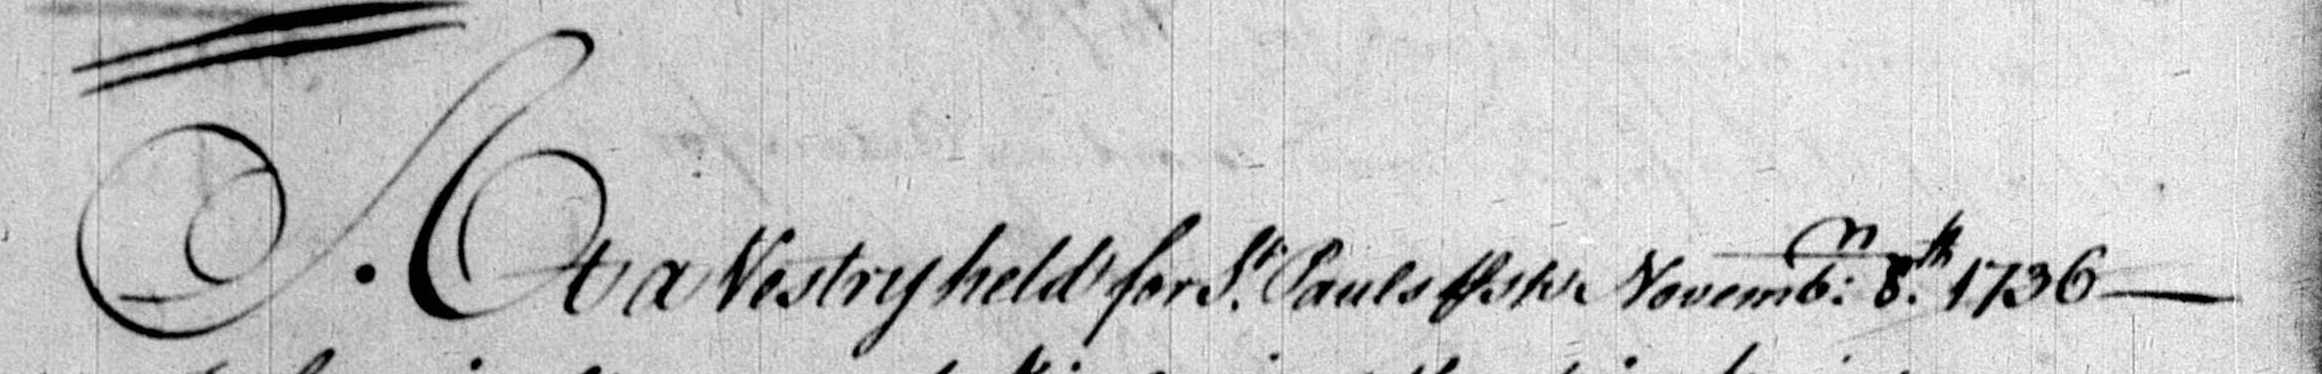 At a Vestry held for St. Pauls Novemb: 8.th 1736